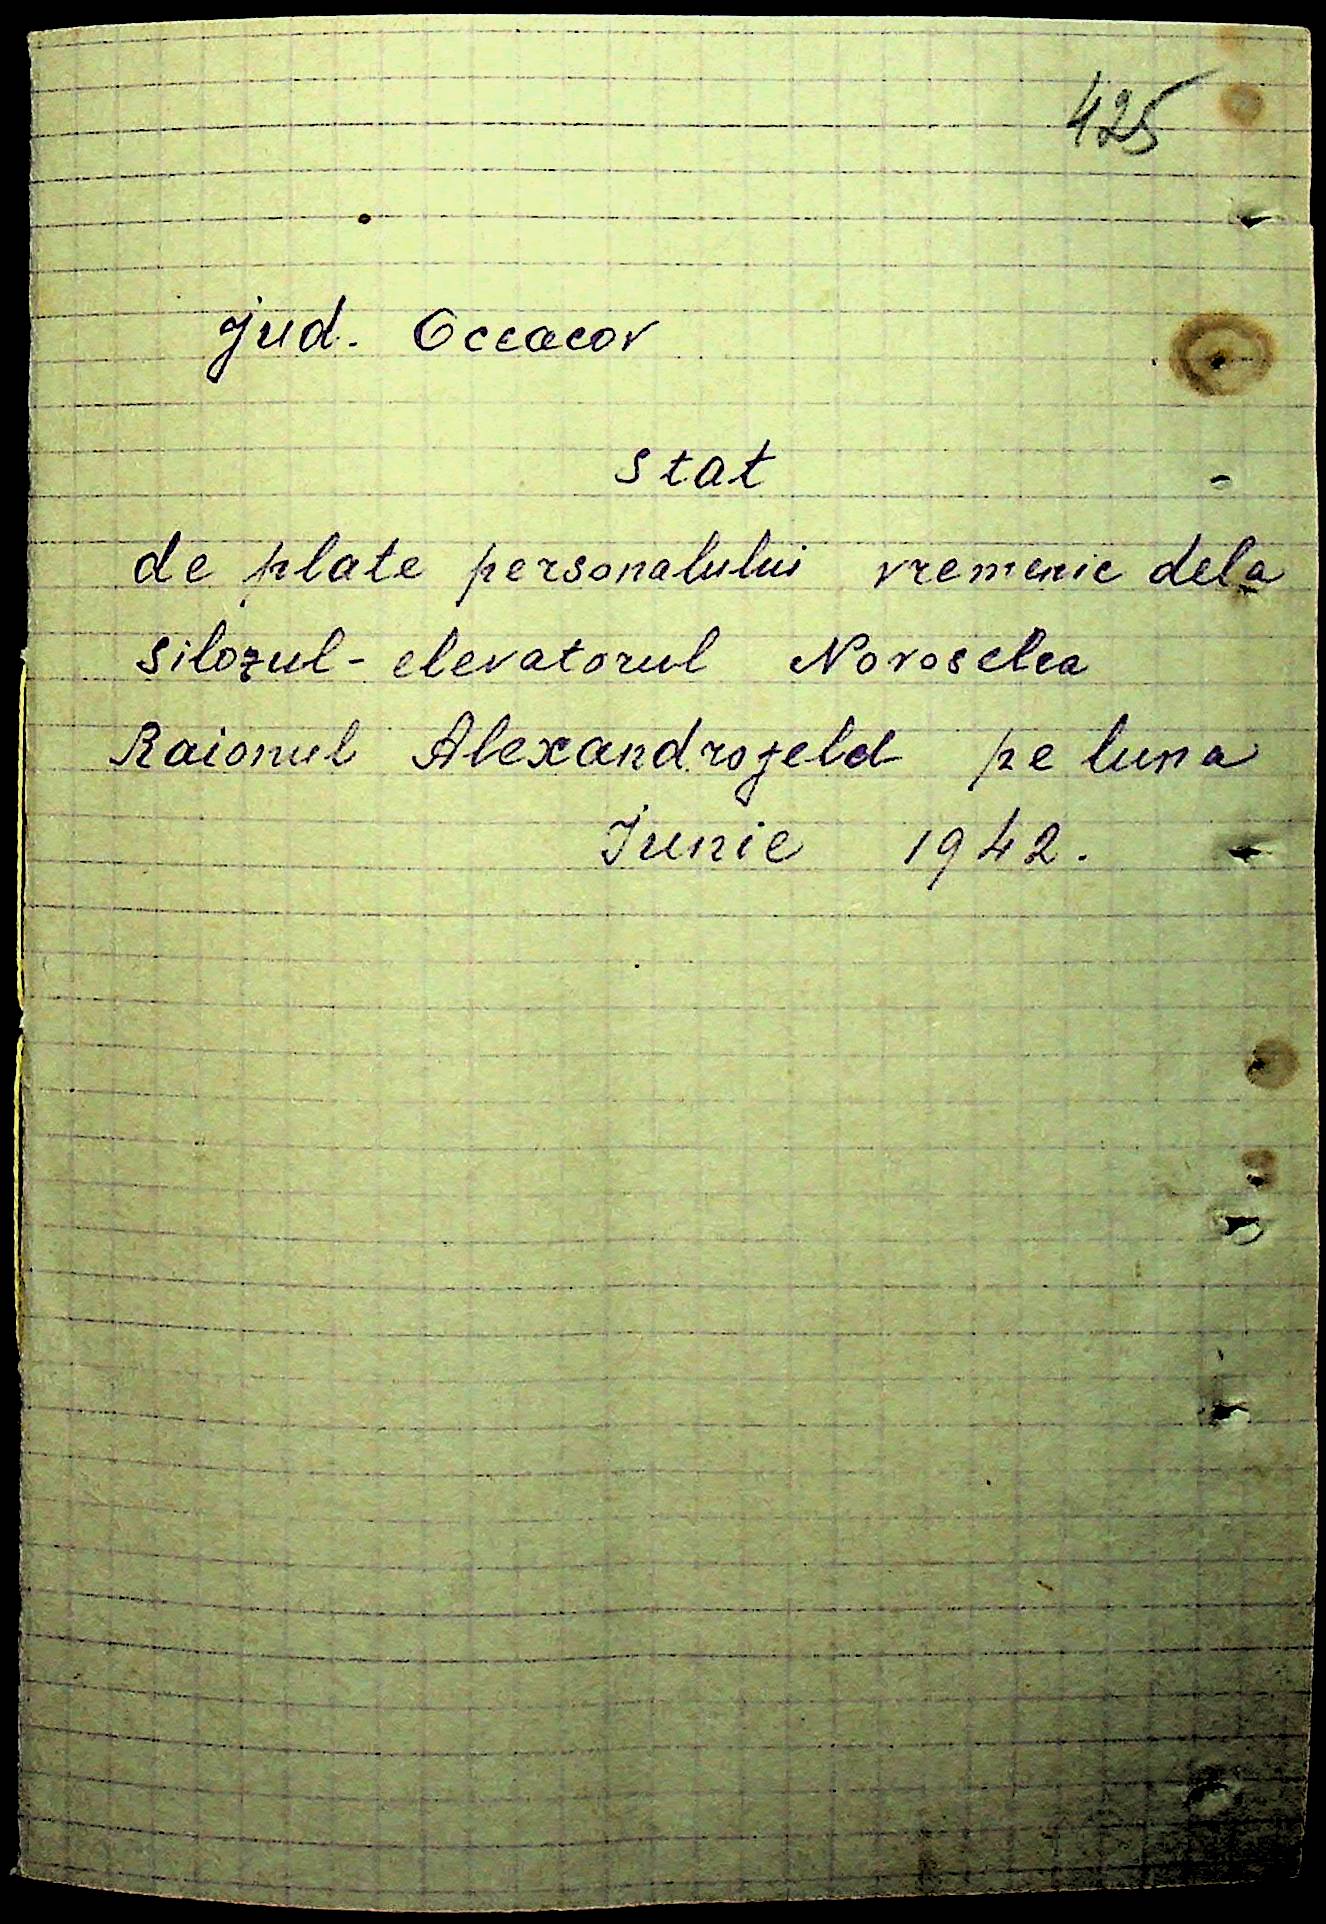 425
jud. Occacov
Stat
de plate personalului vremenic dela
silozul-elevatorul Novoselca
Raionul Alexandrofeld pe luna
Iunie 1942.